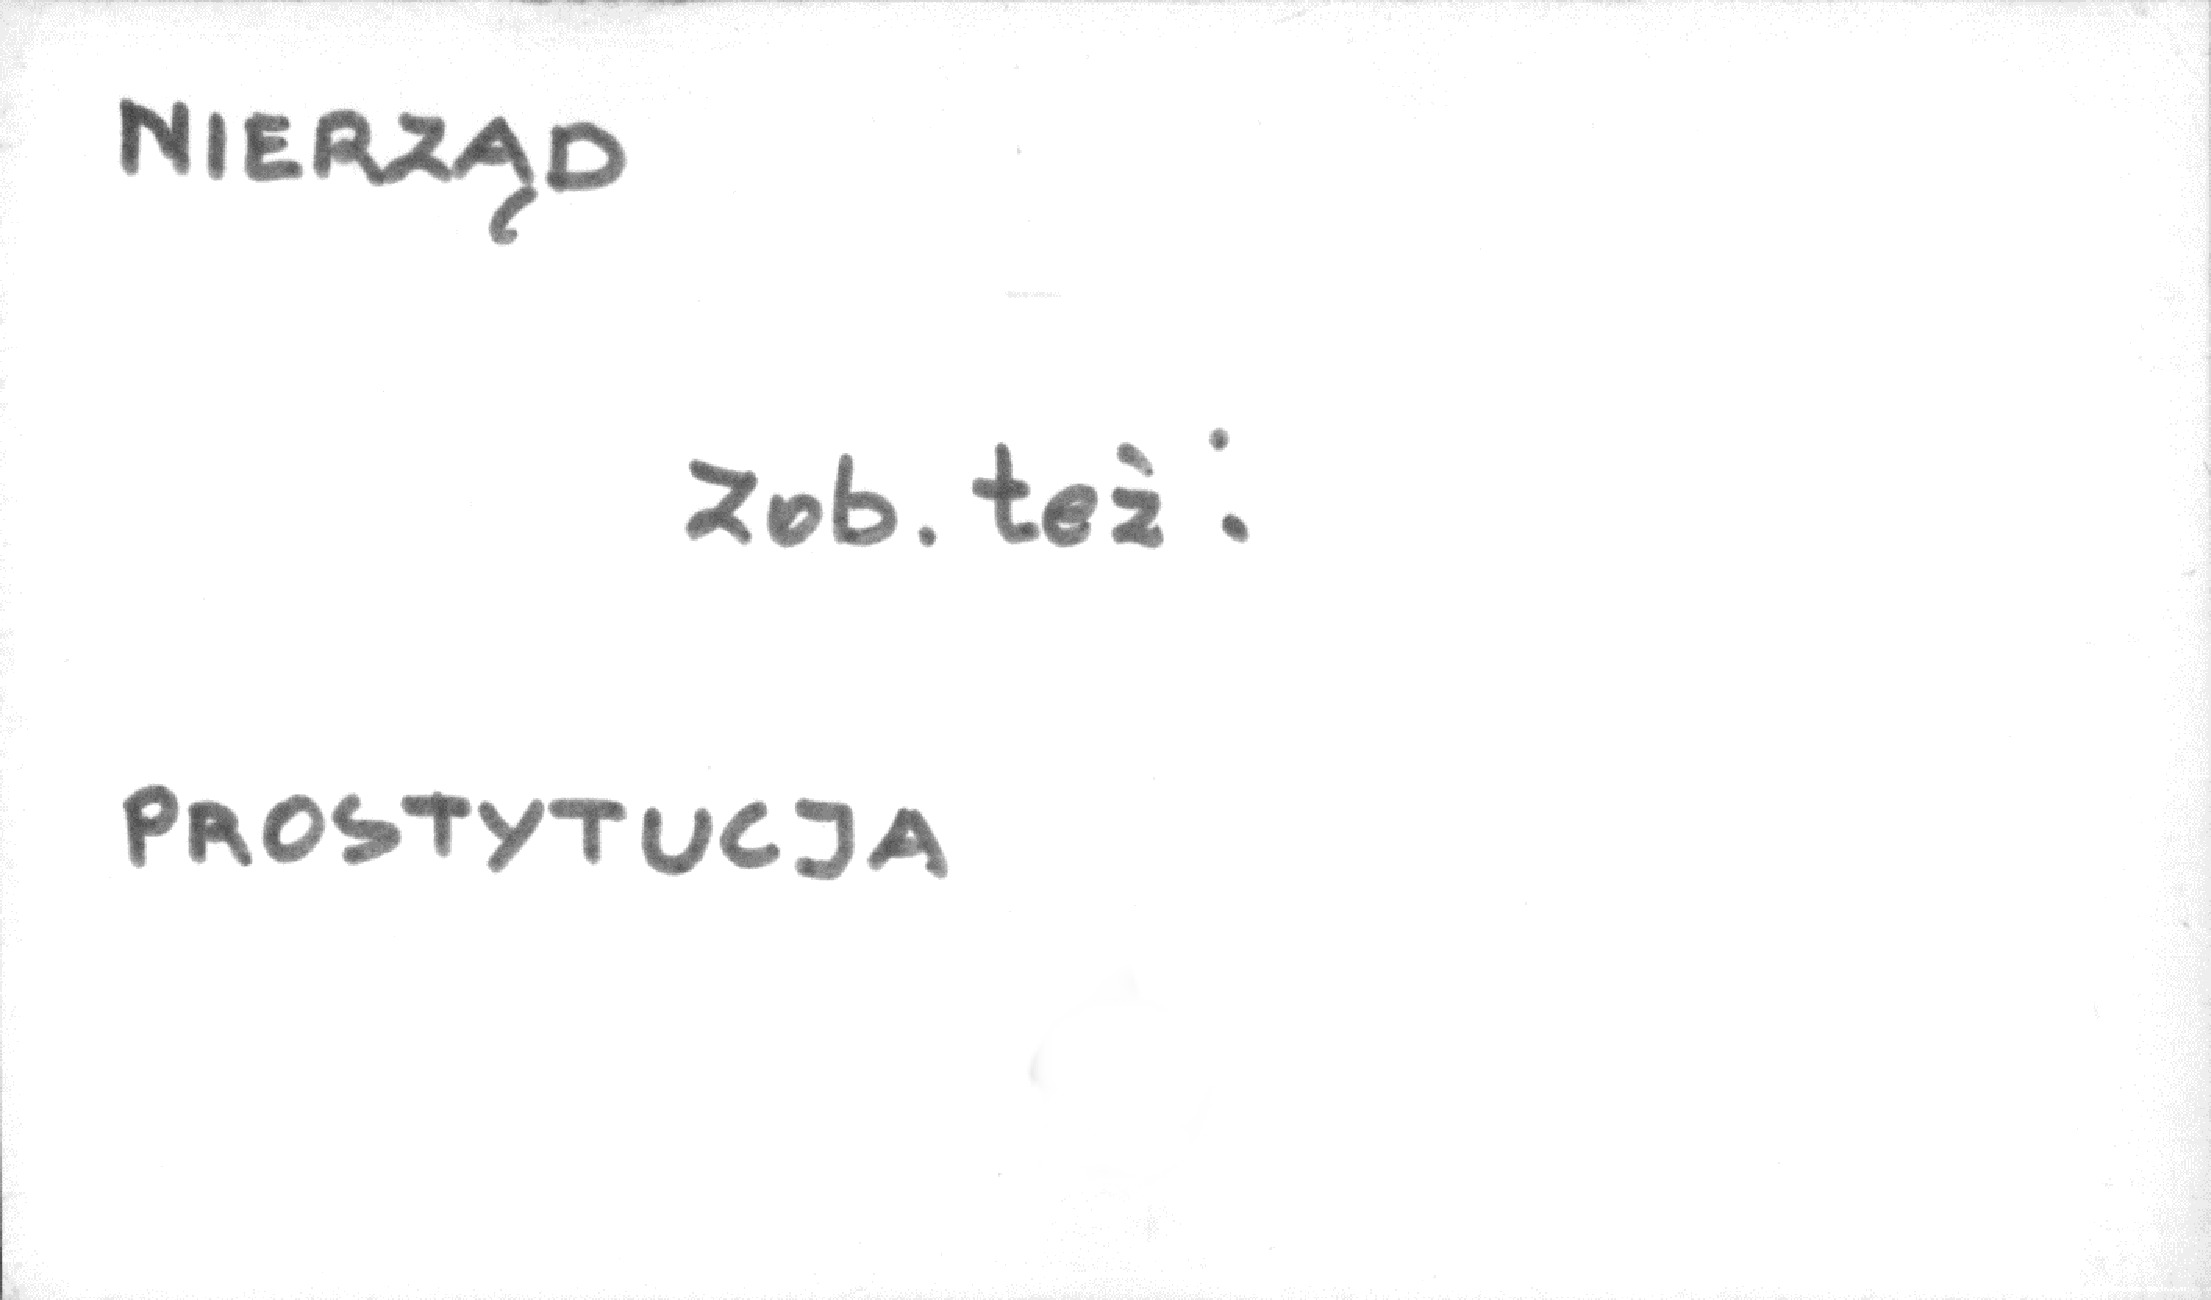 NIERZĄD
Zob. też:
PROSTYTUCJA